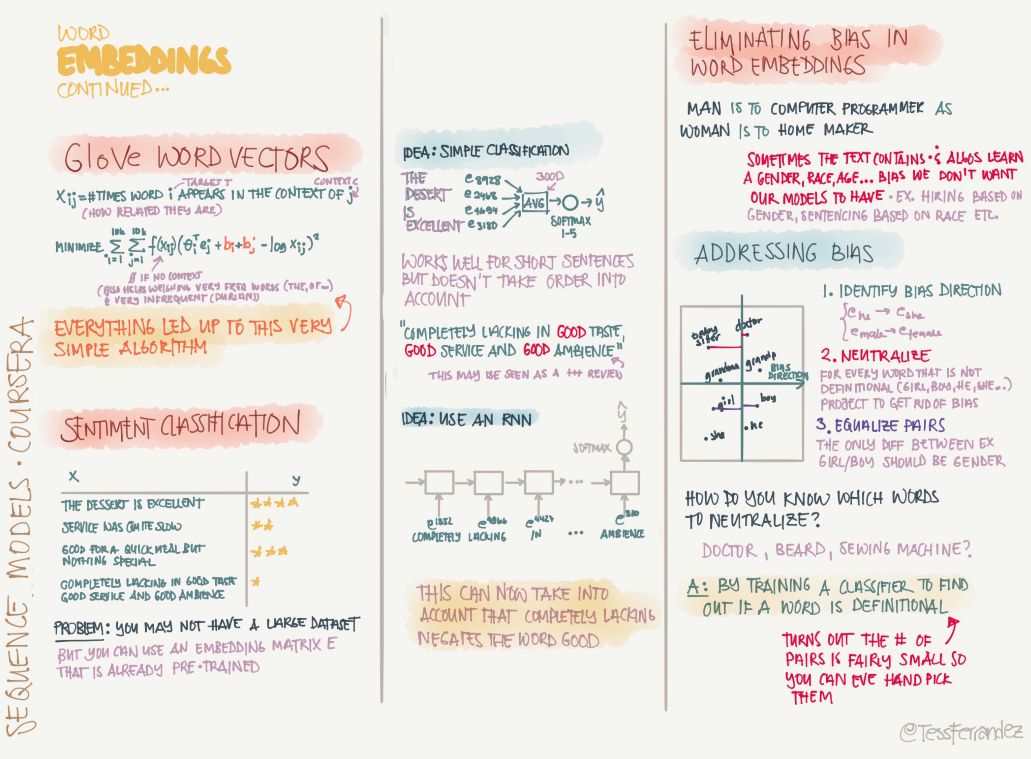 WORD
EMBEDDINGS
CONTINUED...
GloVe WORD VECTORS
TARGET T
CONTEXT C
Xij = #TIMES WORD i APPEARS IN THE CONTEXT OF j
(HOW RELATED THEY ARE)
MINIMIZE 10k Σ i=1 10k Σ j=1 f(xij)(θiT ej + bi + bj' - log xij)²
IF NO CONTEXT
(ALSO HELPS WEIGHING VERY FREQ WORDS (THE, OF...)
& VERY INFREQUENT (DURIAN))
EVERYTHING LED UP TO THIS VERY
SIMPLE ALGORITHM
SENTIMENT CLASSIFICATION
X y
THE DESSERT IS EXCELLENT ★★★★
SERVICE WAS QUITE SLOW ★★
GOOD FOR A QUICK MEAL BUT
NOTHING SPECIAL ★★★
COMPLETELY LACKING IN GOOD TASTE
GOOD SERVICE AND GOOD AMBIENCE ★
PROBLEM: YOU MAY NOT HAVE A LARGE DATASET
BUT YOU CAN USE AN EMBEDDING MATRIX E
THAT IS ALREADY PRE-TRAINED
SEQUENCE MODELS · COURSERA
IDEA: SIMPLE CLASSIFICATION
THE e8928
DESERT e2468
IS e4694
EXCELLENT e3180
300D
AVG
ŷ
SOFTMAX
1-5
WORKS WELL FOR SHORT SENTENCES
BUT DOESN'T TAKE ORDER INTO
ACCOUNT
"COMPLETELY LACKING IN GOOD TASTE,
GOOD SERVICE AND GOOD AMBIENCE"
THIS MAY BE SEEN AS A +++ REVIEW
IDEA: USE AN RNN
ŷ
SOFTMAX
...
e1852 e4966 e4427 e330
COMPLETELY LACKING IN ... AMBIENCE
THIS CAN NOW TAKE INTO
ACCOUNT THAT COMPLETELY LACKING
NEGATES THE WORD GOOD
ELIMINATING BIAS IN
WORD EMBEDDINGS
MAN IS TO COMPUTER PROGRAMMER AS
WOMAN IS TO HOME MAKER
SOMETIMES THE TEXT CONTAINS · & ALGOS LEARN
A GENDER, RACE, AGE... BIAS WE DON'T WANT
OUR MODELS TO HAVE · EX. HIRING BASED ON
GENDER, SENTENCING BASED ON RACE ETC.
ADDRESSING BIAS
baby
sitter
doctor
grandma
grandp
BIAS
DIRECTION
girl
boy
she
he
1. IDENTIFY BIAS DIRECTION
ehe → eshe
emale → efemale
2. NEUTRALIZE
FOR EVERY WORD THAT IS NOT
DEFINITIONAL (GIRL, BOY, HE, SHE...)
PROJECT TO GET RID OF BIAS
3. EQUALIZE PAIRS
THE ONLY DIFF BETWEEN EX
GIRL/BOY SHOULD BE GENDER
HOW DO YOU KNOW WHICH WORDS
TO NEUTRALIZE?
DOCTOR, BEARD, SEWING MACHINE?
A: BY TRAINING A CLASSIFIER TO FIND
OUT IF A WORD IS DEFINITIONAL
TURNS OUT THE # OF
PAIRS IS FAIRLY SMALL SO
YOU CAN EVE HAND PICK
THEM
@TessFerrandez